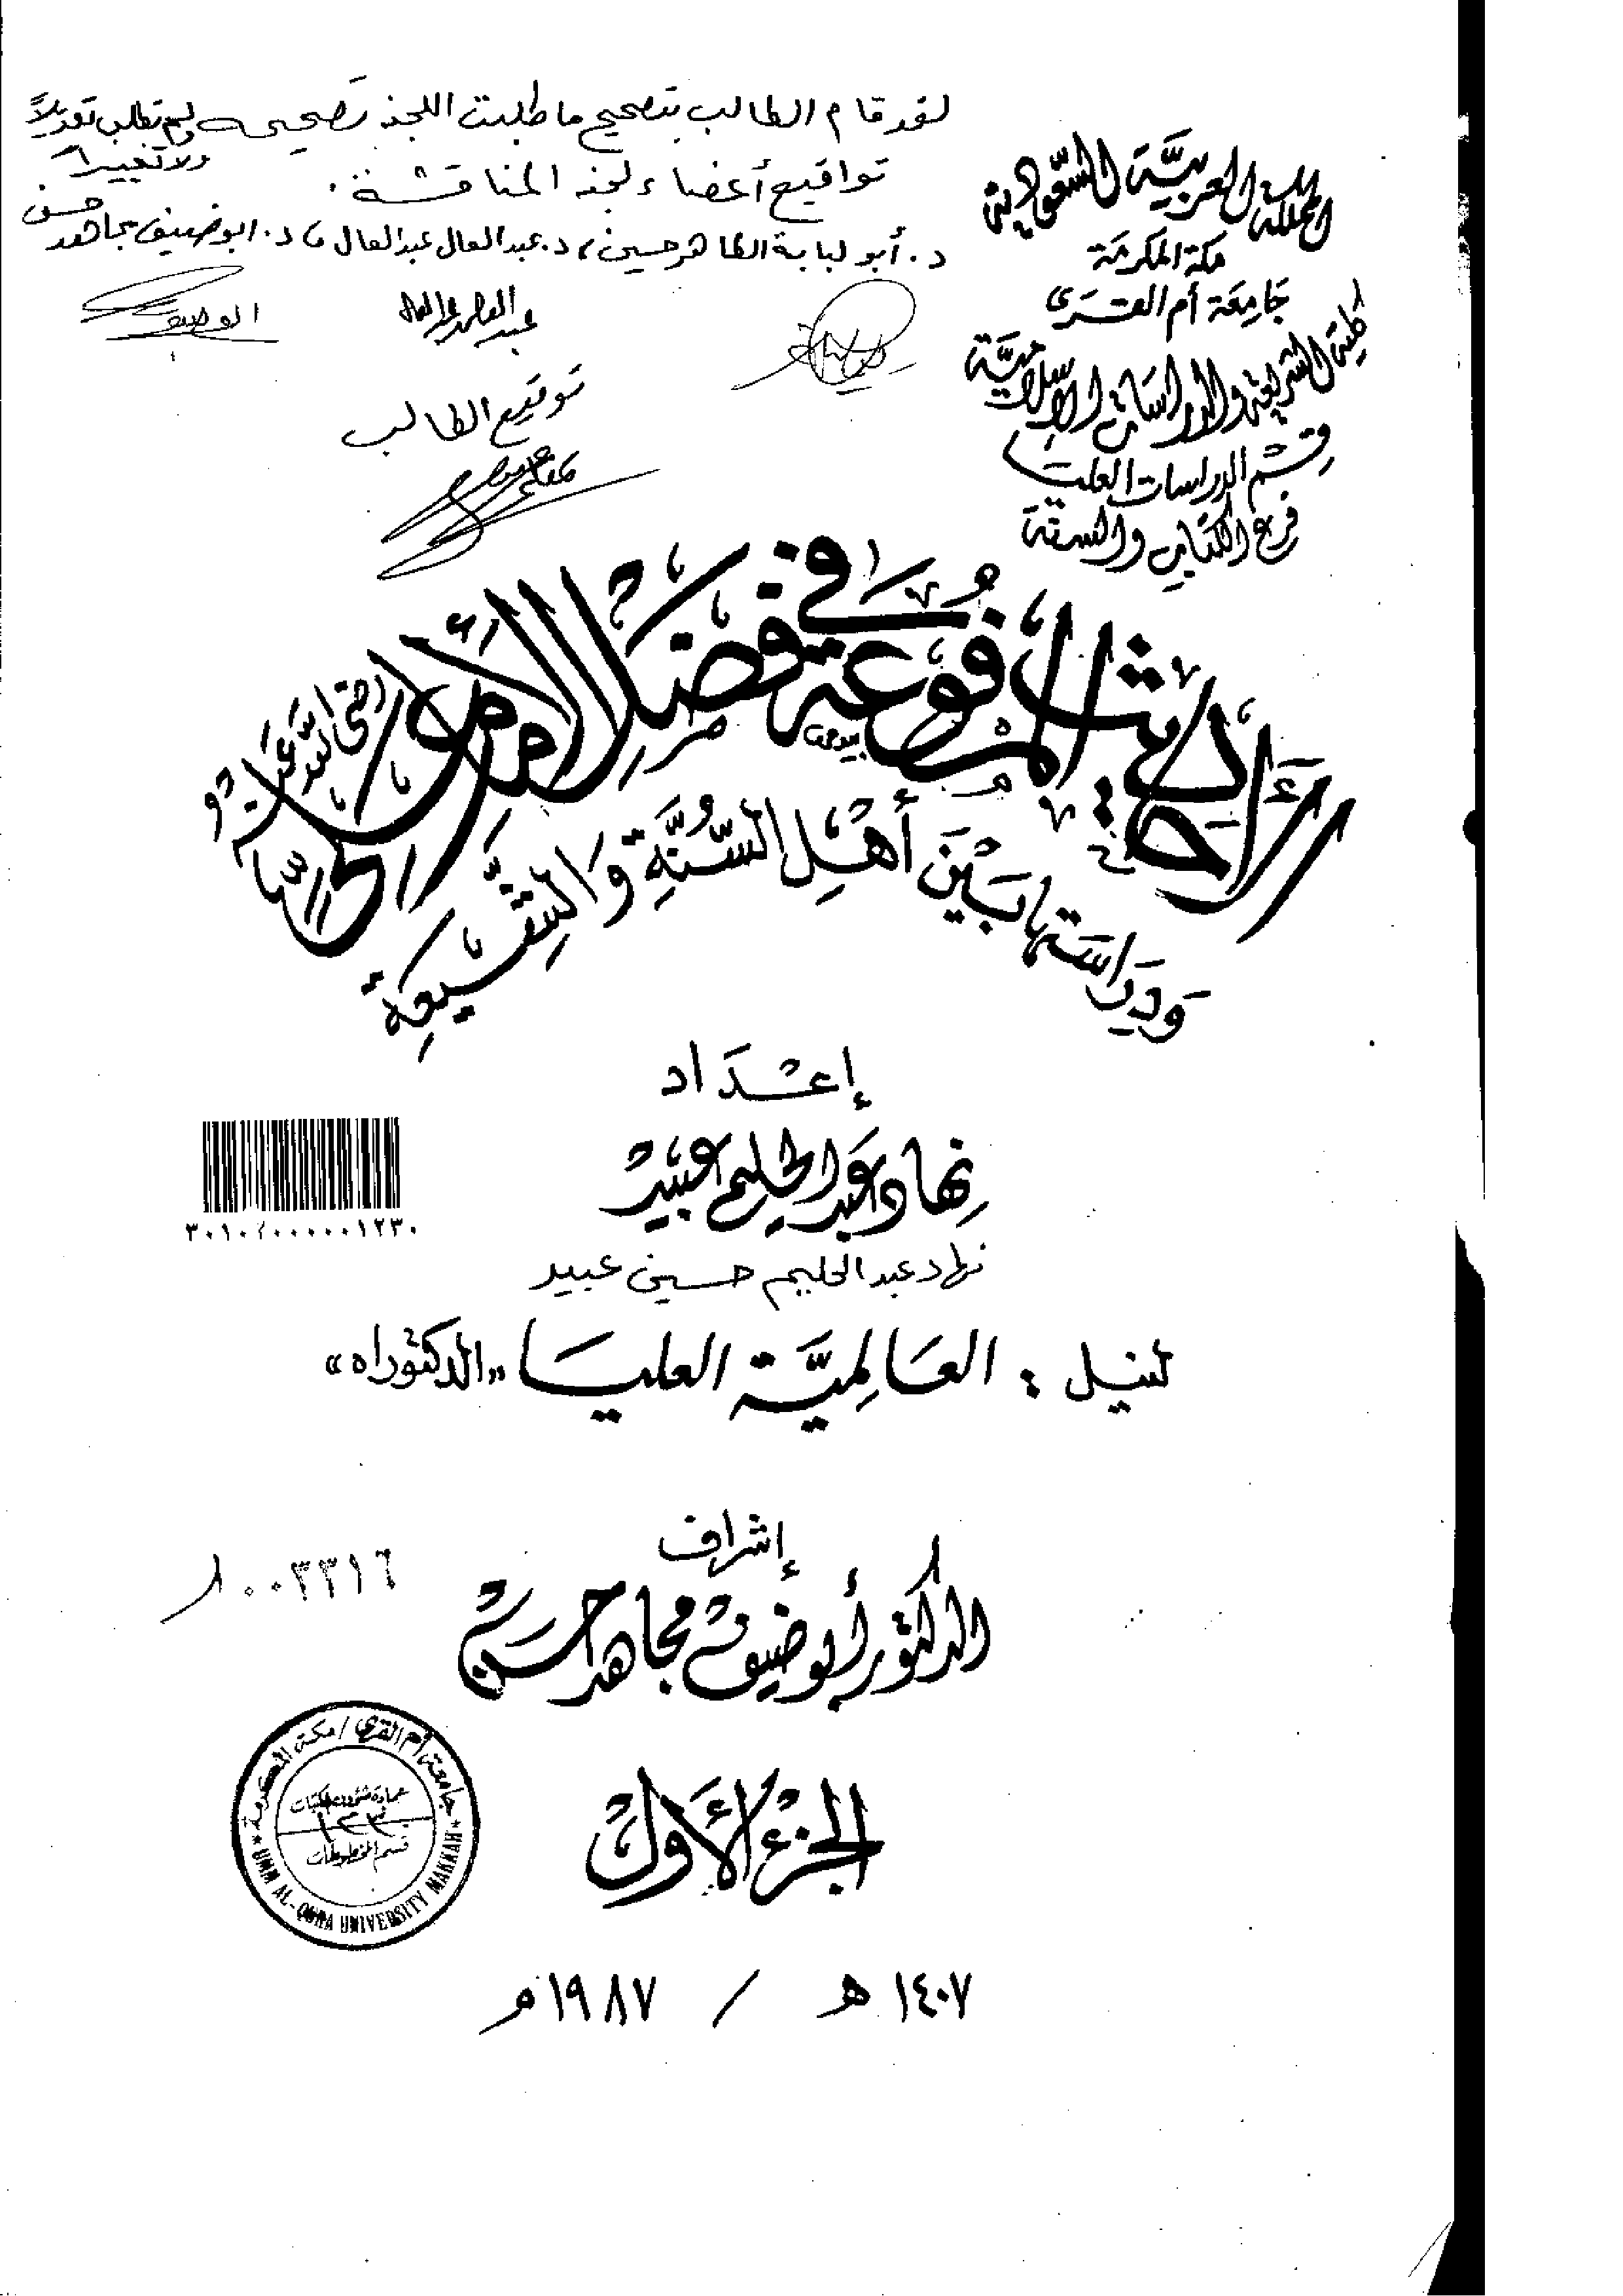 لقد قام الطالب بتصحيح ما طلبت اللجنة تصحيحه ولم تطلب تعديلاً
ولا تغييراً
تواقيع أعضاء لجنة المناقشة .
د. أبو لبابة الطاهر حسين ، د. عبد العال عبد العال ، د. أبو ضيف مجاهد
حسن
توقيع الطالب
المملكة العربيَّة السّعودية
مكة المكرمة
جَامِعَة أم القرى
كلية الشريعة والدراسات الإسلاميَّة
قسم الدراسات العليا
فرع الكتاب والسنة
الأحاديث المرفوعة في فضل الإمام علي رضي الله عنه
وَدِرَاسَتها بَيْن أهْل السُّنَّةِ وَالشِّيعَةِ
إعْدَاد
نهاد عبد الحليم عبيد
٣٠١٠٢٠٠٠٠٠١٢٣٠
نهاد عبد الحليم حسين عبيد
لنيل : العَالِميَّة العليا «الدكتوراه»
إشراف
الدكتور أبو ضيف مجاهد حسن
٠٠٣٣١٦
جامعة أم القرى / مكة المكرمة
عمادة شؤون المكتبات
١٢٣٠
قسم المخطوطات
UMM AL-QURA UNIVERSITY MAKKAH
الجزء الأول
١٤٠٧ هـ / ١٩٨٧ م